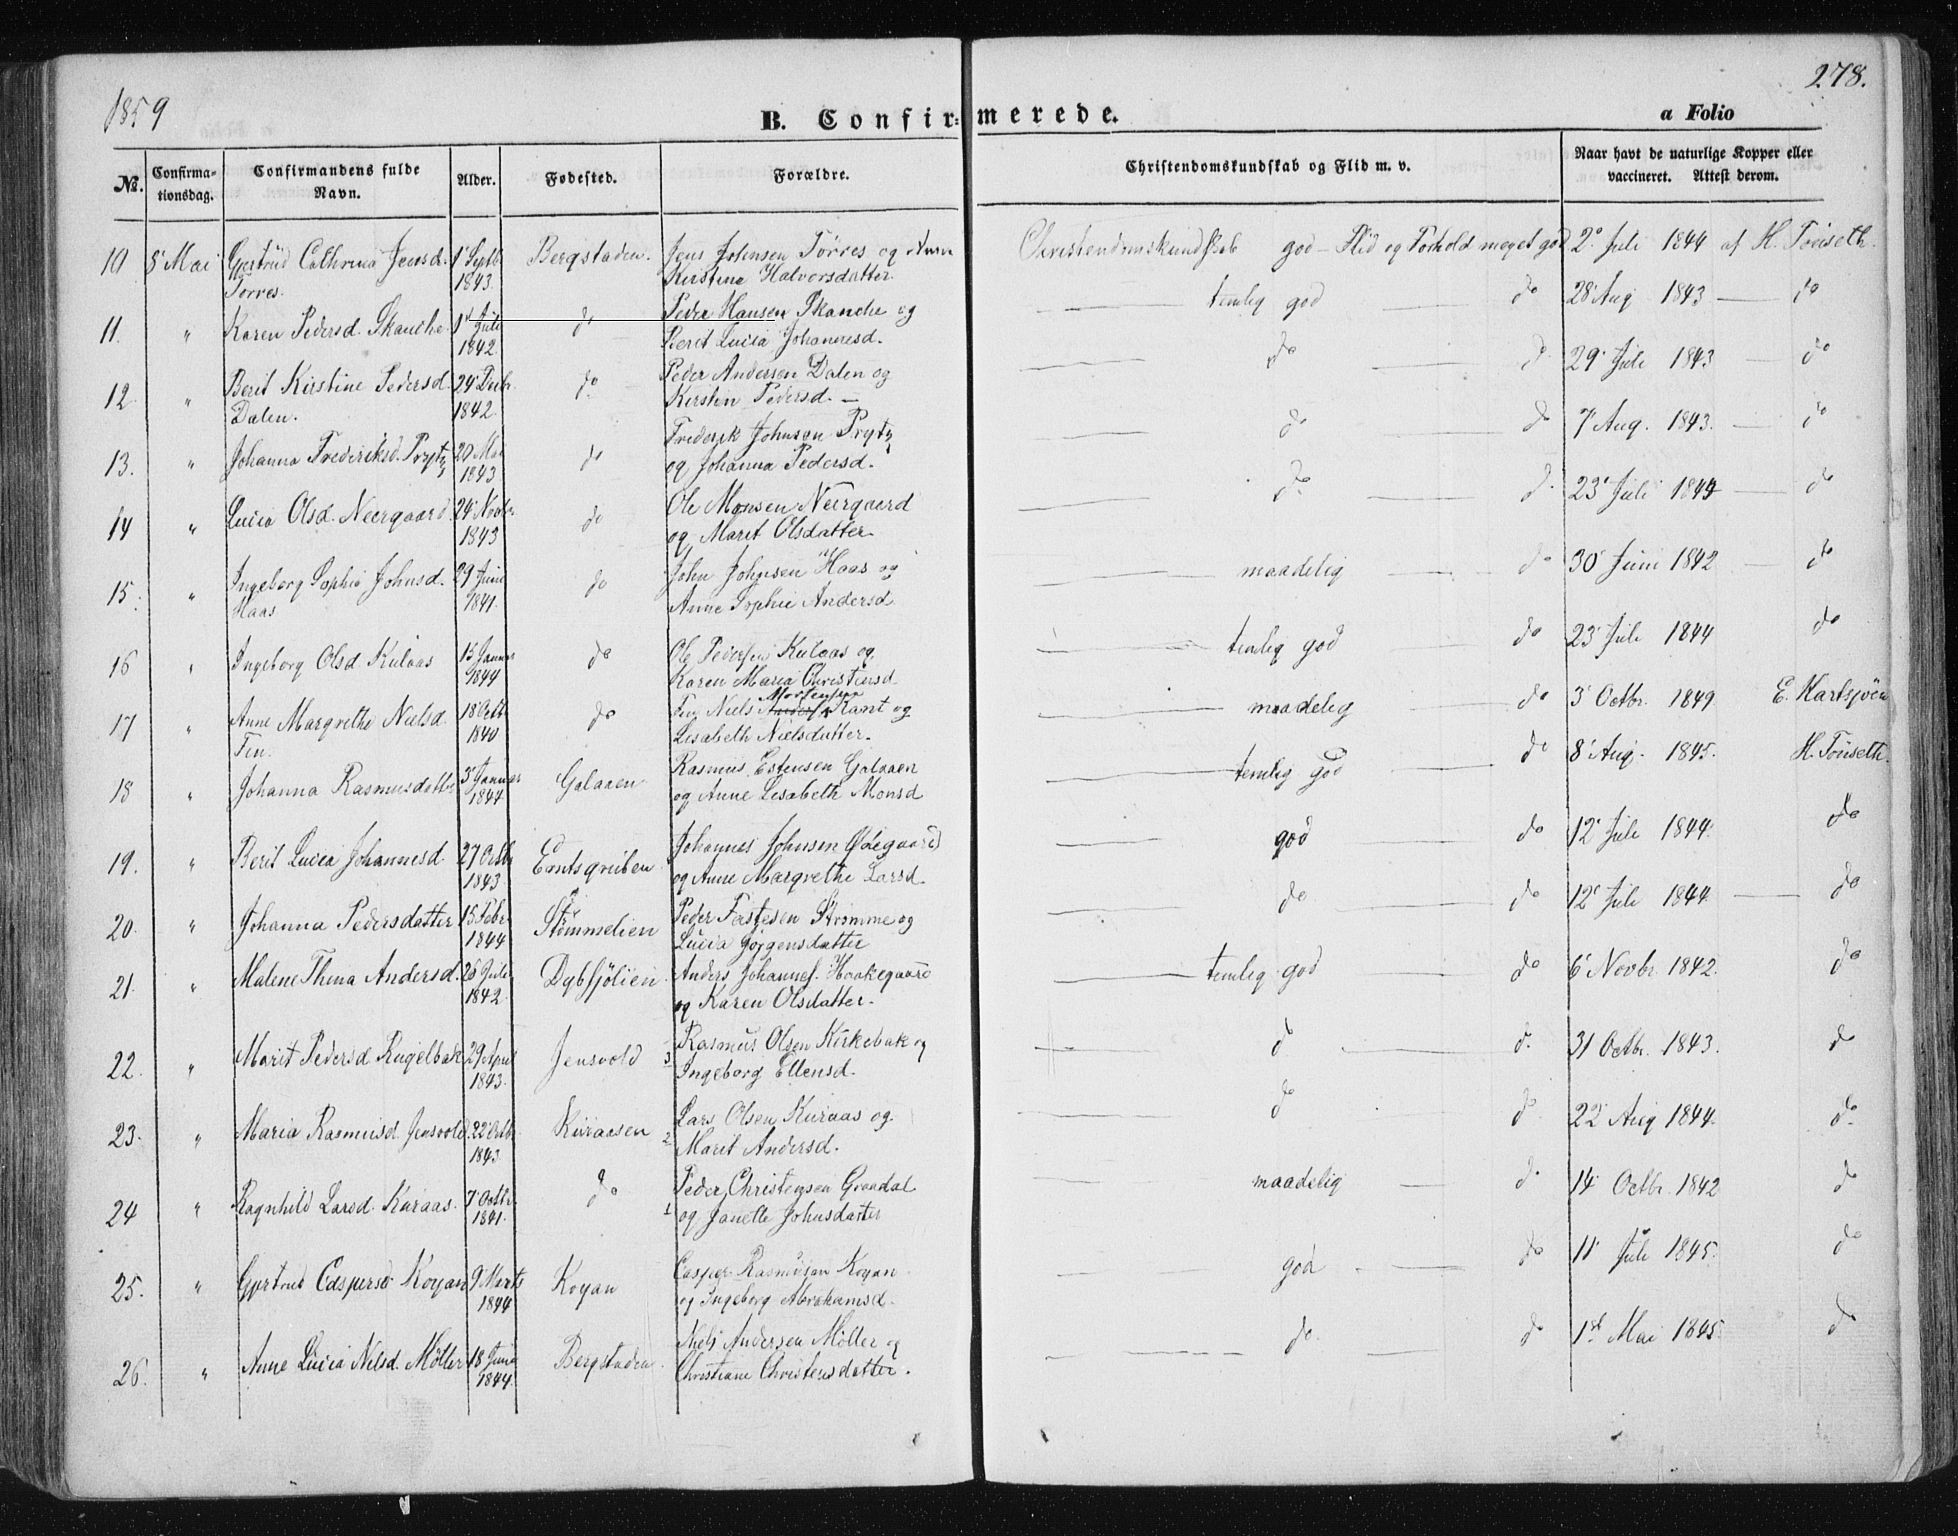 1859
278.
B. Confirmerede.
a Folio
No. Confirmationsdag. Confirmandens fulde Navn. Alder. Fødested. Forældre. Christendomskundskab og Flid m. v. Naar havt de naturlige Kopper eller vaccineret. Attest derom.
10 8 Mai Gjertrud Cathrina Jensd. 1' Septb Bergstaden. Jens Johnsen Torres og Anne Christendomskundskab god - Flid og Forhold meget god 2' Juli 1844 af H. Tønseth.
Torres. 1843. Kirstine Halvorsdatter.
11. " Karen Pedersd. Skanche 1' Juli do Peder Hansen Skanche og temlig god do 28' Aug 1843 do
1842. Berit Lucia Johannesd.
12 " Berit Kirstine Pedersd. 24' Decbr. do Peder Andersen Dalen og do do 29' Juli 1843 do
Dalen. 1842. Kirsten Pedersd.
13. " Johanna Frederiksd. Prytz 20 Mai do Frederik Johnsen Prytz do do 7' Aug. 1843. do
1843 og Johanna Pedersd.
14 " Lucia Olsd. Neergaard 24' Novbr. do Ole Monsen Neergaard do do 23' Juli 1844 do
1843 og Marit Olsdatter.
15. " Ingeborg Sophie Johnsd. 29 Juni do John Johnsen Haas og maadelig do 30' Juni 1842 do
Haas 1841. Anne Sophie Andersd.
16 " Ingeborg Olsd Kuraas 15 Januar do Ole Pedersen Kuraas og temlig god do 23' Juli 1844 do
1844 Karen Maria Christensd
17 " Anne Margrethe Nielsd. 18 Octb do Niels Mortensen Kant og maadelig do 3' Octbr. 1849 E. Kartsjøen
Fin. 1840 Lisabeth Nielsdatter.
18 " Johanna Rasmusdatter 3' Januar Galaaen Rasmus Estensen Galaaen temlig god do 8' Aug. 1845. H. Tønseth.
1844 og Anne Lisabeth Monsd
19. " Berit Lucia Johannesd. 27 Octb Johannes Johnsen Ødegaard god do 12' Juli 1844. do
1843 og Anne Margrethe Larsd.
20. " Johanna Pedersdatter 15 Febr. Strømmelien Peder Fastesen Strømme og do do 12' Juli 1844. do
1844 Lucia Jørgensdatter
21. " Malene Thina Andersd. 26' Juli Dybsjølien Anders Johannes. Haakegaard temlig god do 6' Novbr. 1842. do
1842. og Karen Olsdatter.
22. " Marit Pedersd Rugelbak 29 April Jensvold 3 Rasmus Olsen Kirkebak og do do 31 Octbr. 1843. do
1843. Ingeborg Ellensd.
23. " Maria Rasmusd. Jensvold 22' Octb. Kuraasen 2 Lars Olsen Kuraas og do do 22' Aug 1844. do
1843 Marit Andersd.
24 " Ragnhild Larsd. Kuraas. 7' Octbr. do 1 Peder Christensen Graadal maadelig do 14' Octbr. 1842 do
1841. og Janette Johnsdatter
25. " Gjertrud Caspersd Koyan 9' Marts Koyan Casper Rasmusen Koyan god do 11' Juli 1845. do
1844 og Ingeborg Abrahamsd.
26. " Anne Lucia Nilsd. Möller 18 Juni Bergstaden. Niels Andersen Möller og do do 1st Mai 1845. do
1844. Christiane Christensdatter.